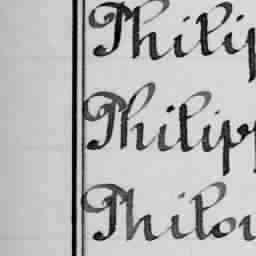 Philip
Philipp
Philou